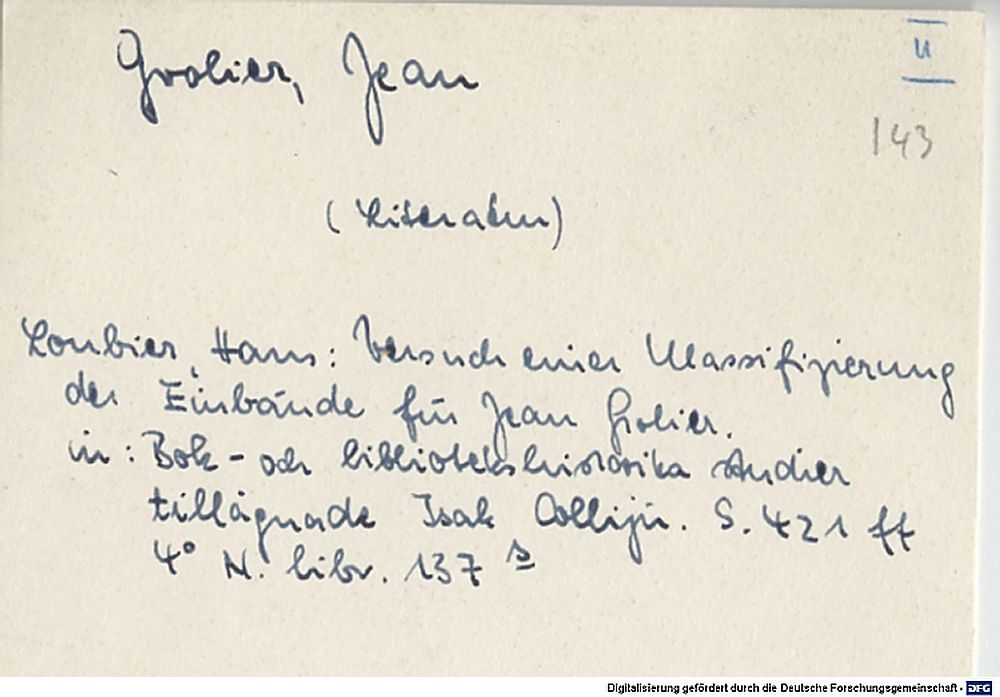 Grolier, Jean
u
143
(Literatur)
Loubier, Hans: Versuch einer Klassifizierung
der Einbände für Jean Grolier.
in: Bok- och bibliotekshistoriska studier
tillägnade Isak Collijn. S. 421 ff
4° N. libr. 137 s
Digitalisierung gefördert durch die Deutsche Forschungsgemeinschaft - DFG